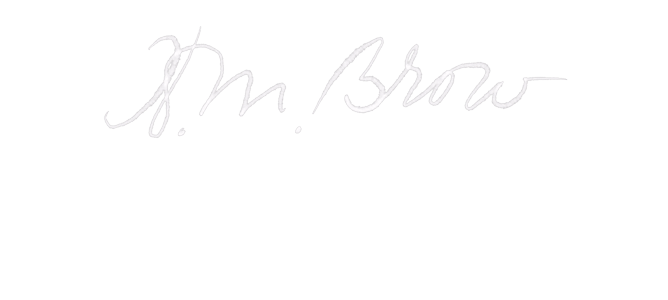 H. M. Brow